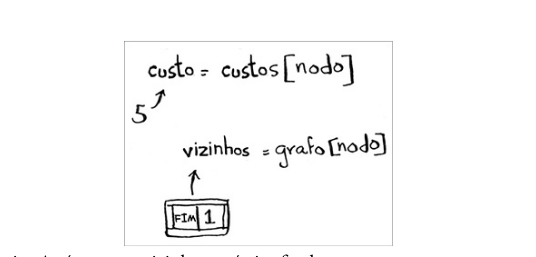 custo = custos[nodo]
5
vizinhos = grafo[nodo]
FIM 1